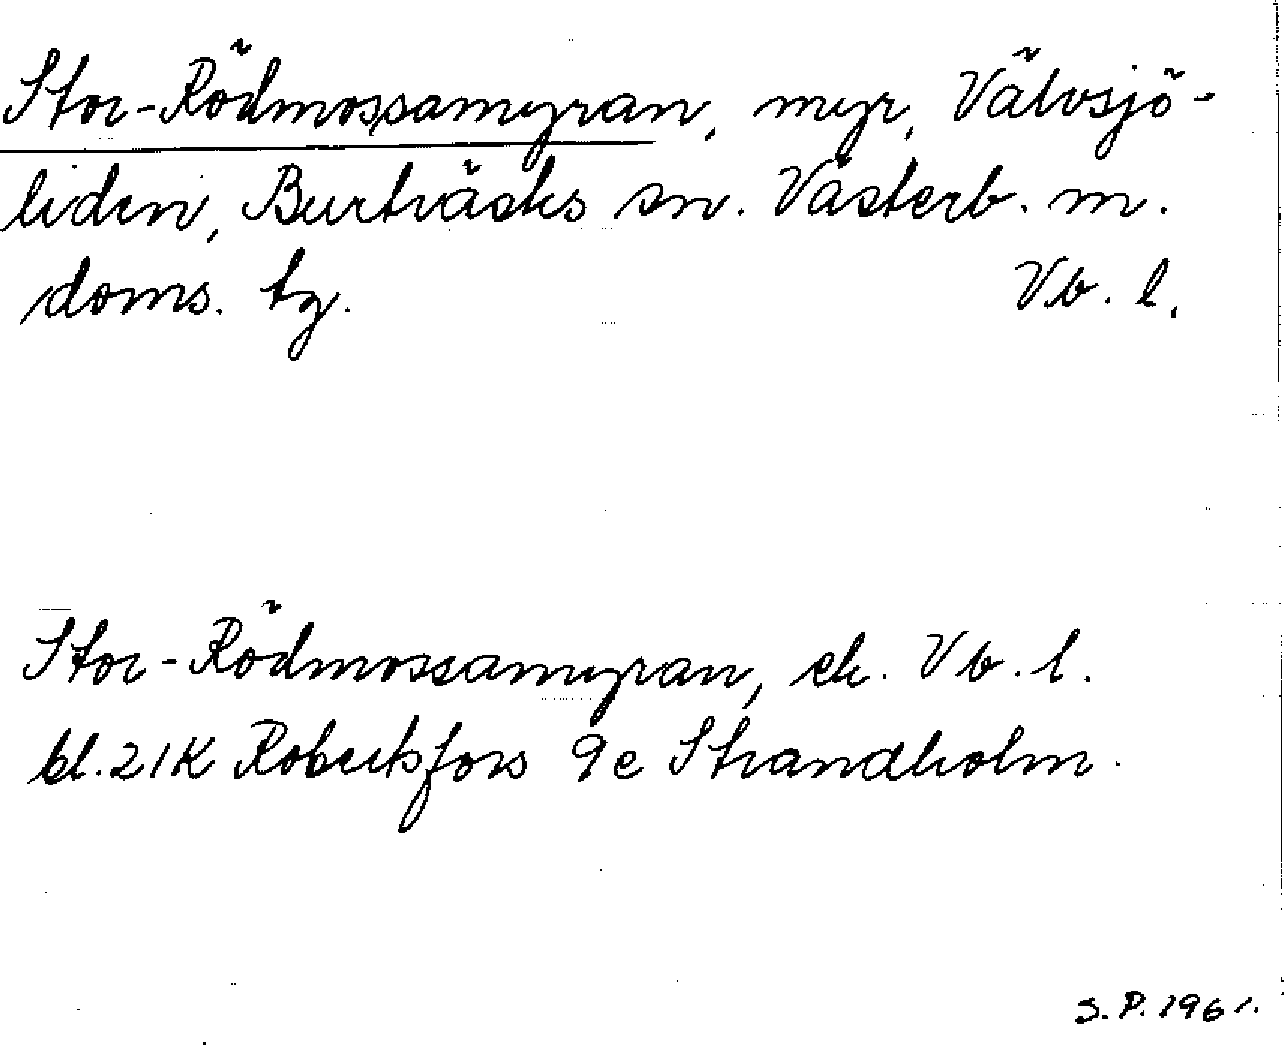 Stor-Rödmossamyran, myr, Välvsjö-
liden, Burträsks sn. Västerb. m.
doms. tg. Vb. l.
Stor-Rödmossamyran, ek. Vb. l.
bl. 21K Robertsfors 9e Strandholm.
S.P. 1961.